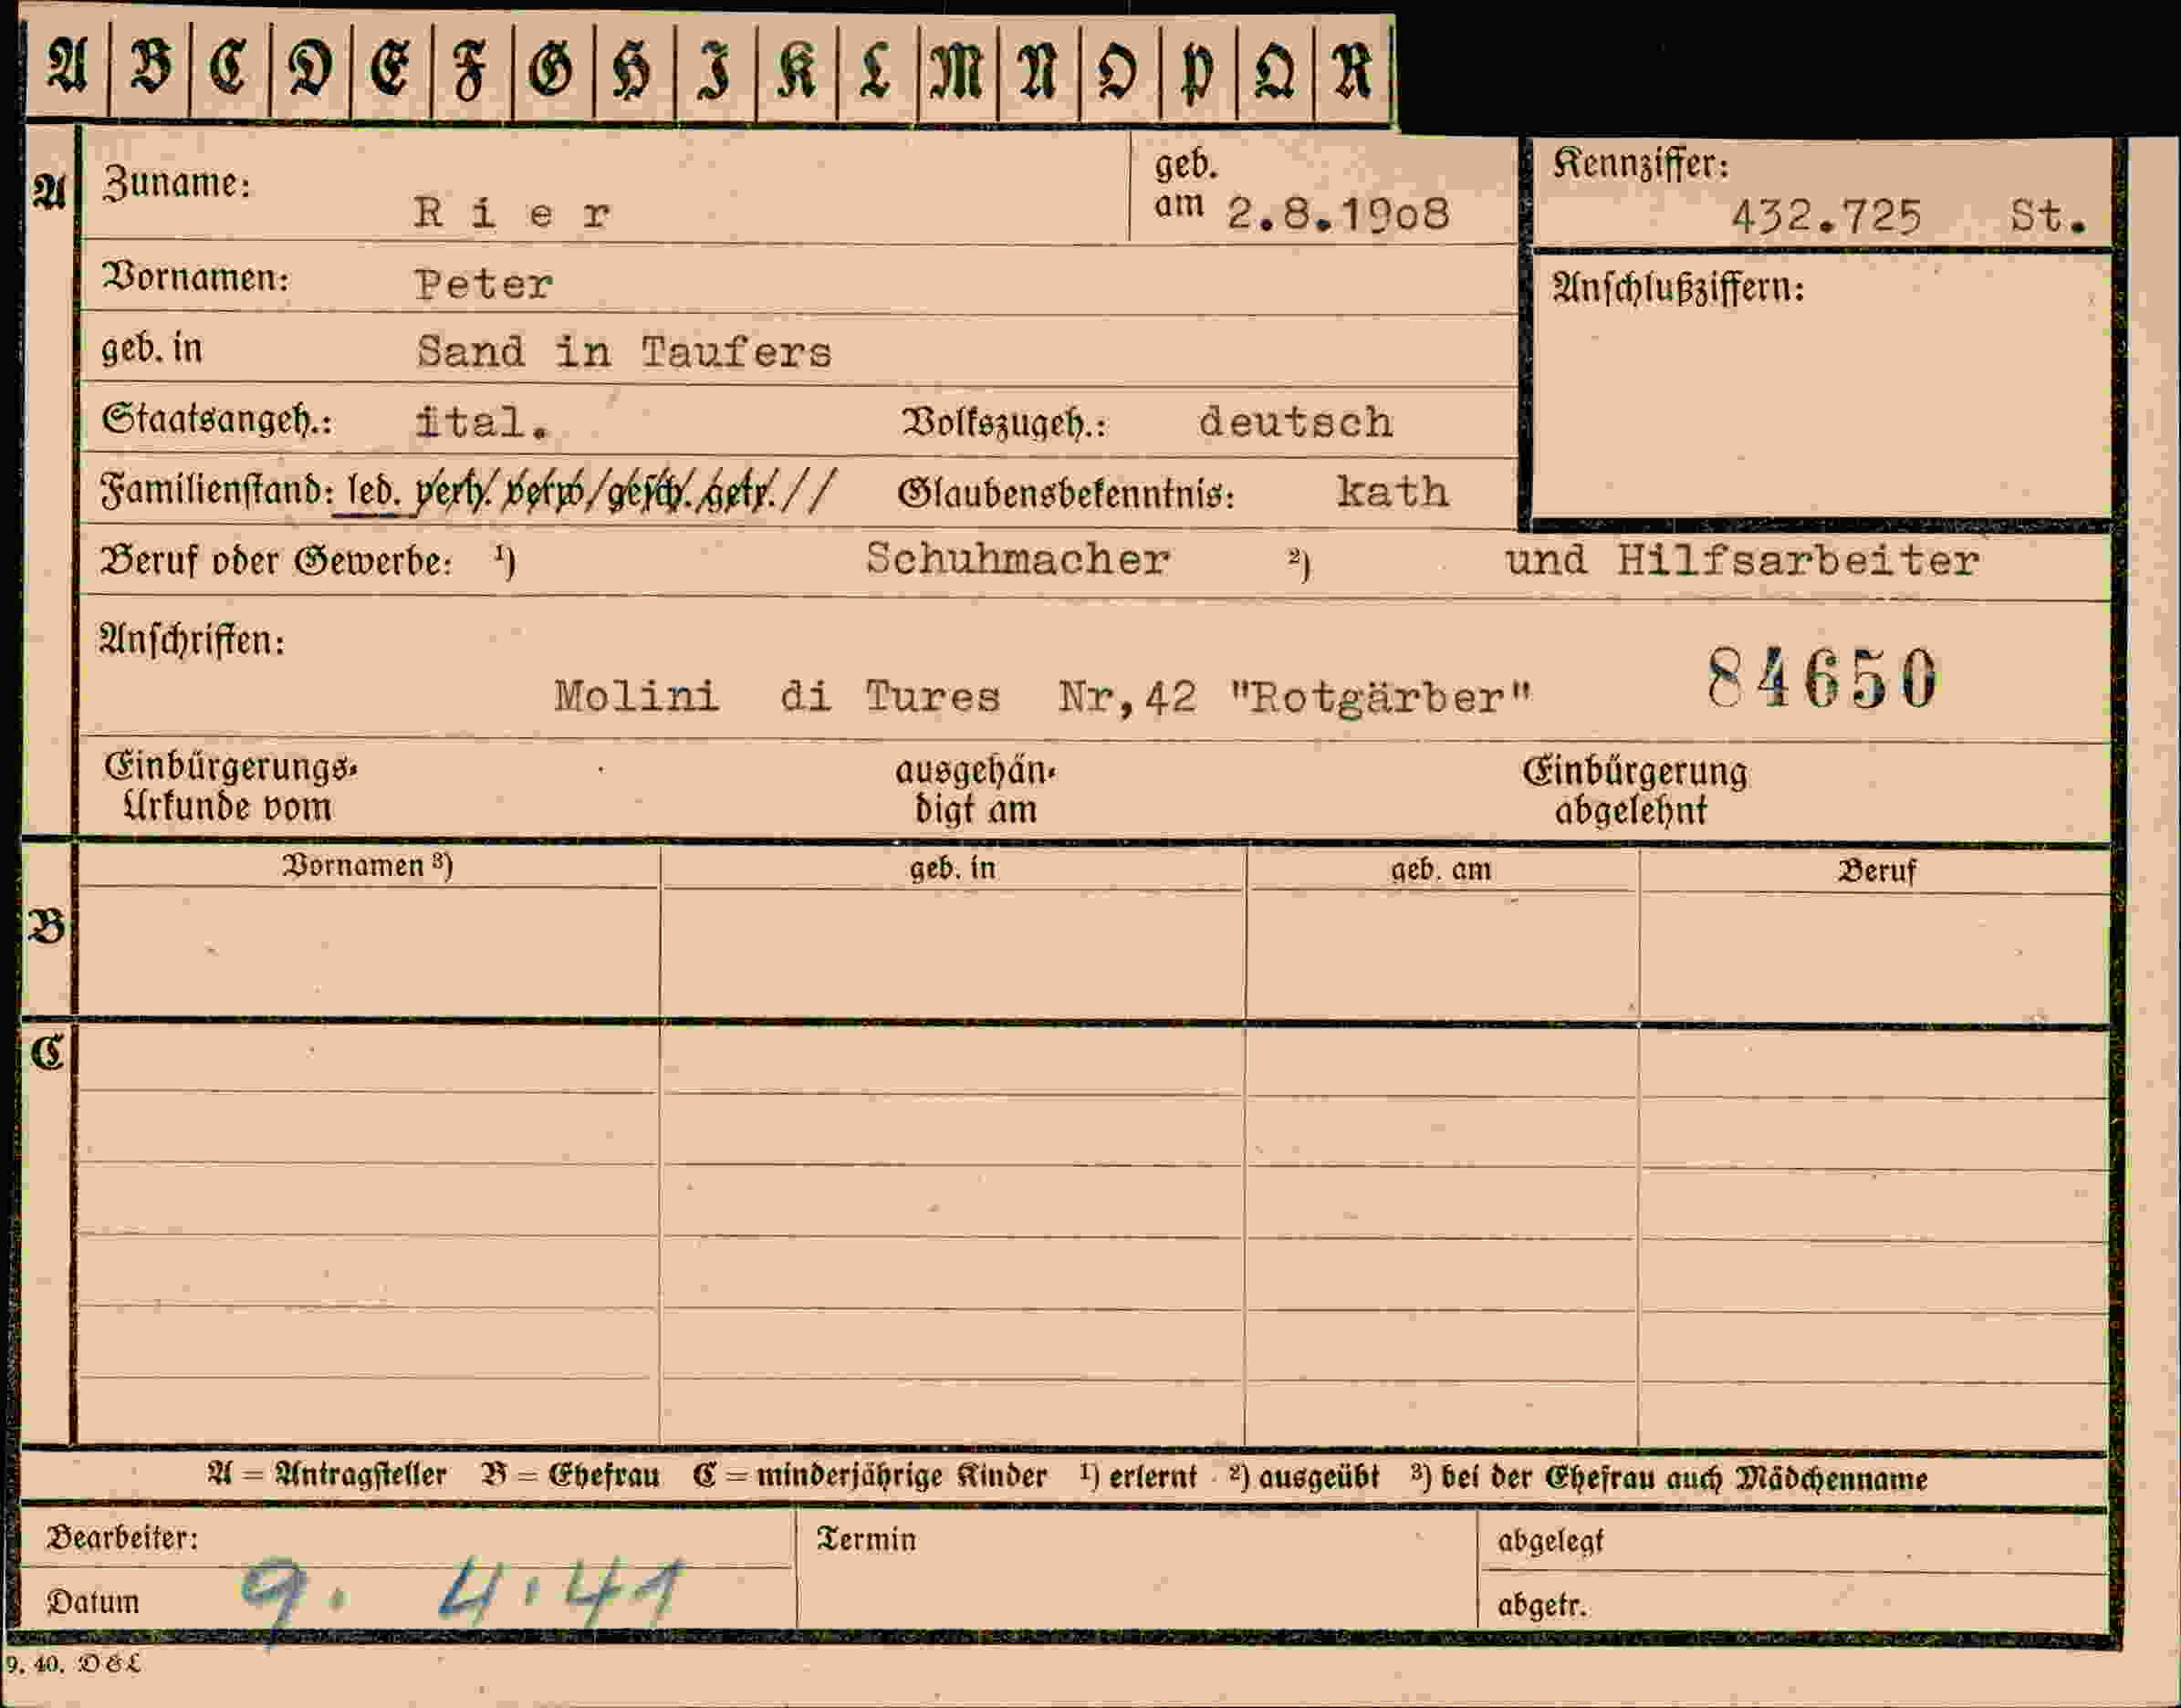 A B C D E F G H I K L M N O P Q R
A
Zuname: R i e r
geb. am 2.8.19o8
Kennziffer: 432.725 St.
Vornamen: Peter
Anschlußziffern:
geb. in Sand in Taufers
Staatsangeh.: ital. Volkszugeh.: deutsch
Familienstand: led. verh. verw. gesch. getr. // Glaubensbekenntnis: kath
Beruf oder Gewerbe: ¹) Schuhmacher ²) und Hilfsarbeiter
Anschriften:
84650
Molini di Tures Nr,42 "Rotgärber"
Einbürgerungs- ausgehän- Einbürgerung
Urkunde vom digt am abgelehnt
Vornamen ³) geb. in geb. am Beruf
B
C
A = Antragsteller B = Ehefrau C = minderjährige Kinder ¹) erlernt ²) ausgeübt ³) bei der Ehefrau auch Mädchenname
Bearbeiter: Termin abgelegt
Datum 9. 4.41 abgetr.
9. 40. D&L